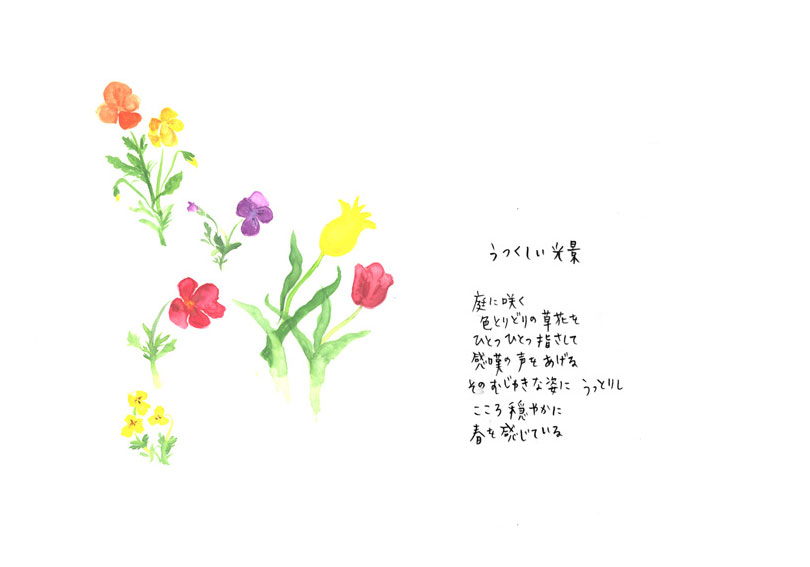 うつくしい光景
庭に咲く
色とりどりの草花を
ひとつひとつ指さして
感嘆の声をあげる
そのむじゃきな姿に うっとりし
こころ穏やかに
春を感じている